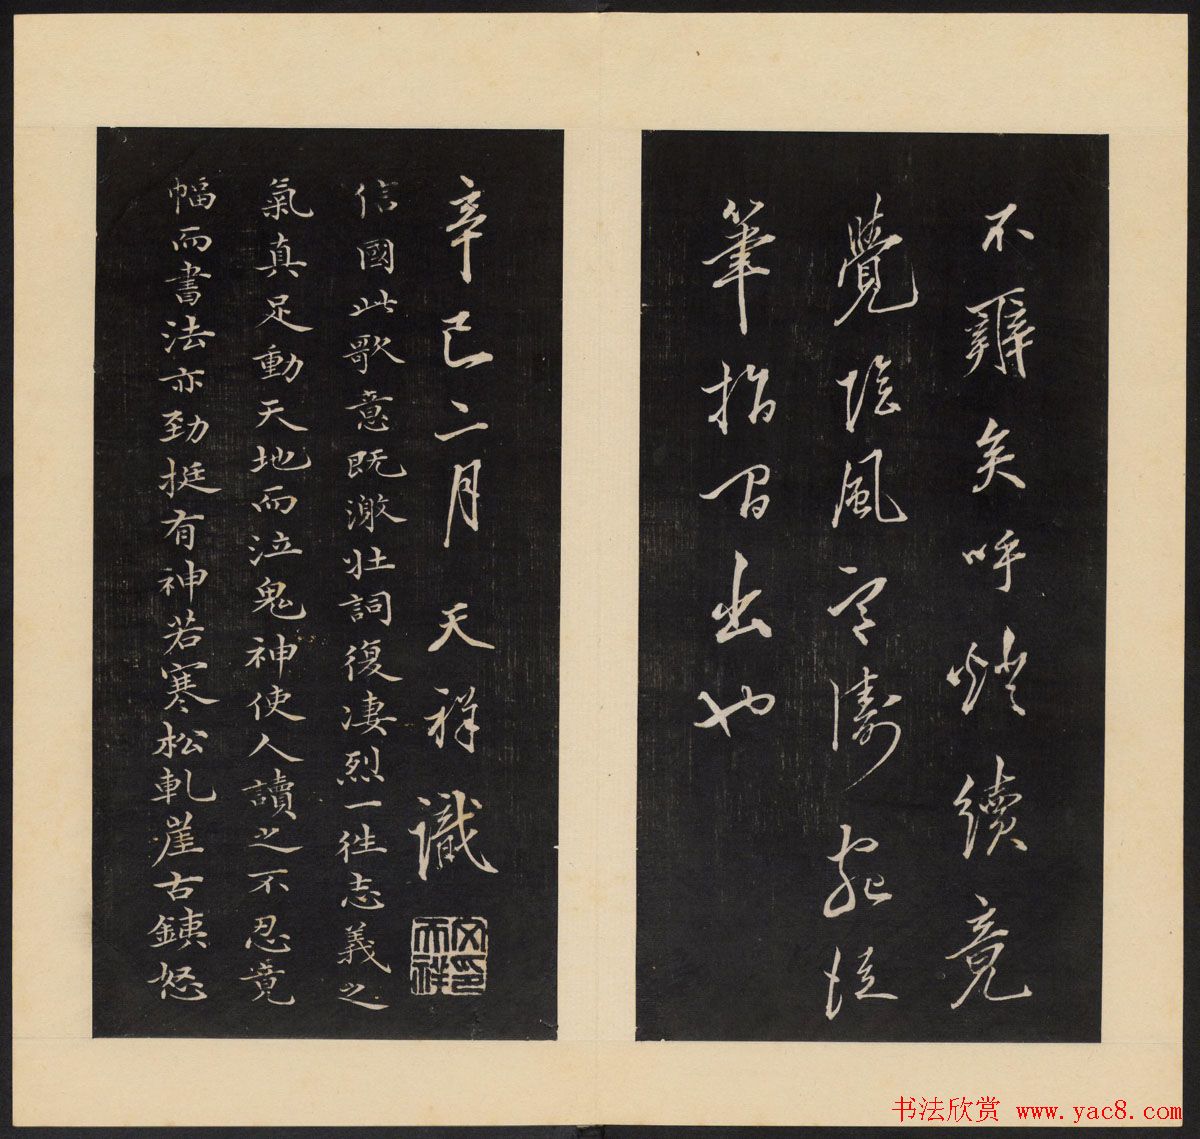 不難矣呼燈續竟
覺陰風寒濤宛從
筆指間出也
辛巳二月天祥識
文天祥印
信國此歌意既激壯詞復淒烈一往志義之
氣真足動天地而泣鬼神使人讀之不忍竟
幅而書法亦勁挺有神若寒松軋崖古鐵怒
书法欣赏 www.yac8.com